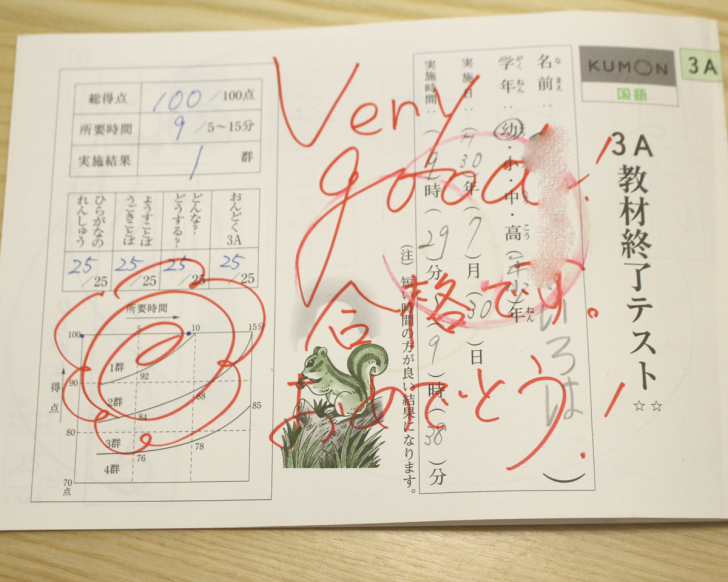 KUMON
国語
3A
3A教材終了テスト
☆☆
名前：
なまえ
いろは
学年：（幼・小・中・高（年少）年）
がくねん
実施日：（H30年）（7）月（30）日
実施時間：（9）時（29）分～（9）時（38）分
（注）短い時間の方が良い結果になります。
Very
good!
合格です。
おめでとう！
総得点 100／100点
所要時間 9／5～15分
実施結果 1 群
おんどく3A 25／25
どんな？どうする？ 25／25
ようすことばうごきことば 25／25
ひらがなのれんしゅう 25／25
所要時間
5 10 15分
得点
100
90
80
70点
1群
2群
3群
4群
92
84
76
88
78
85